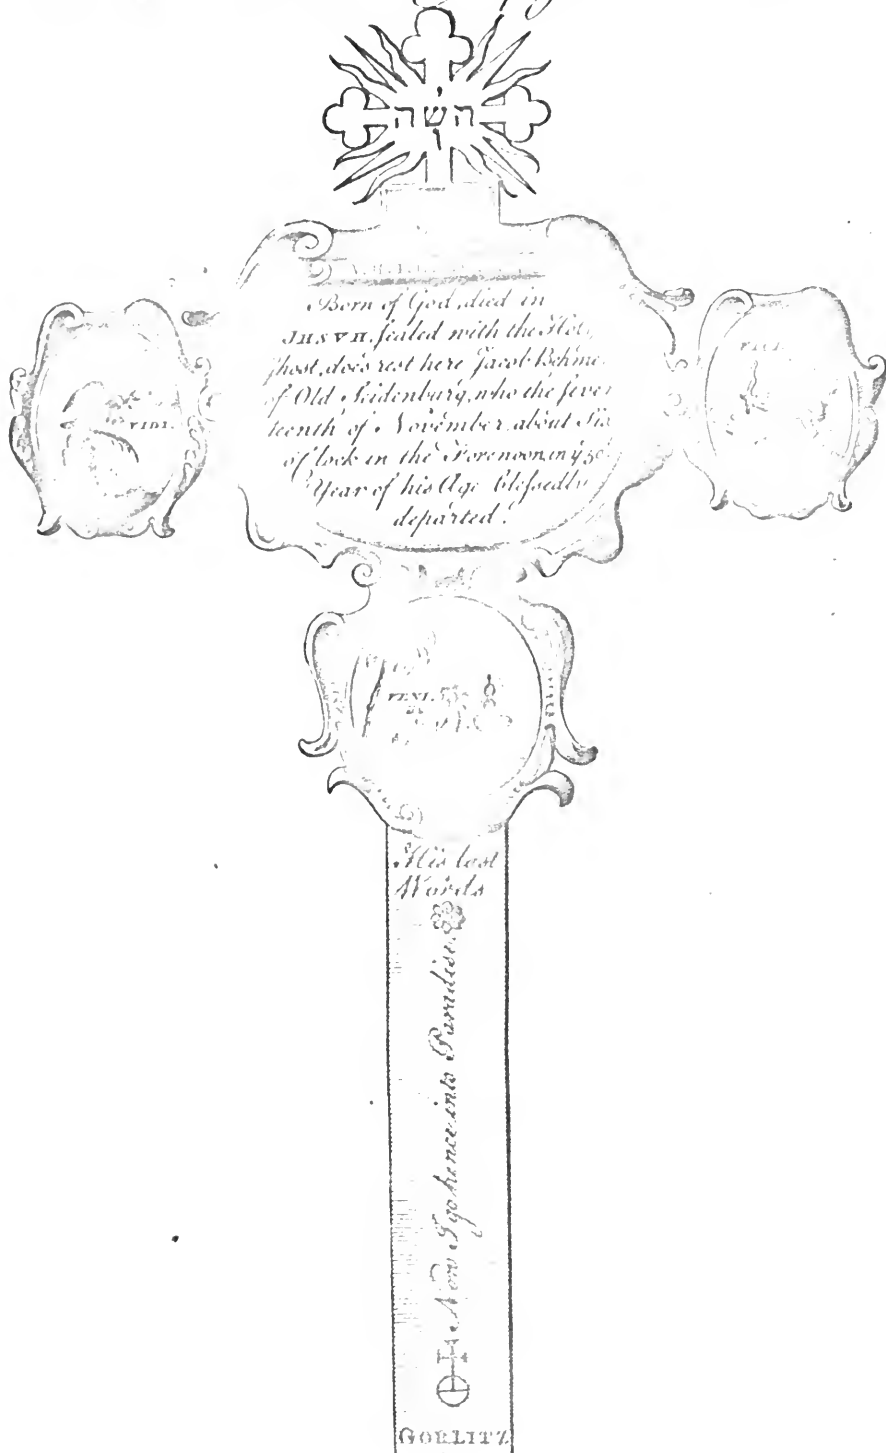 השה
Born of God, died in
JHSVH, sealed with the Holy
Ghost, does rest here Jacob Behme
of Old Seidenburg, who the seven
teenth of November about Six
o'Clock in the Forenoon in ye 50
Year of his Age blessedly
departed.
VIDI.
VICI.
VENI.
His last
Words
Now I go hence into Paradise.
GORLITZ